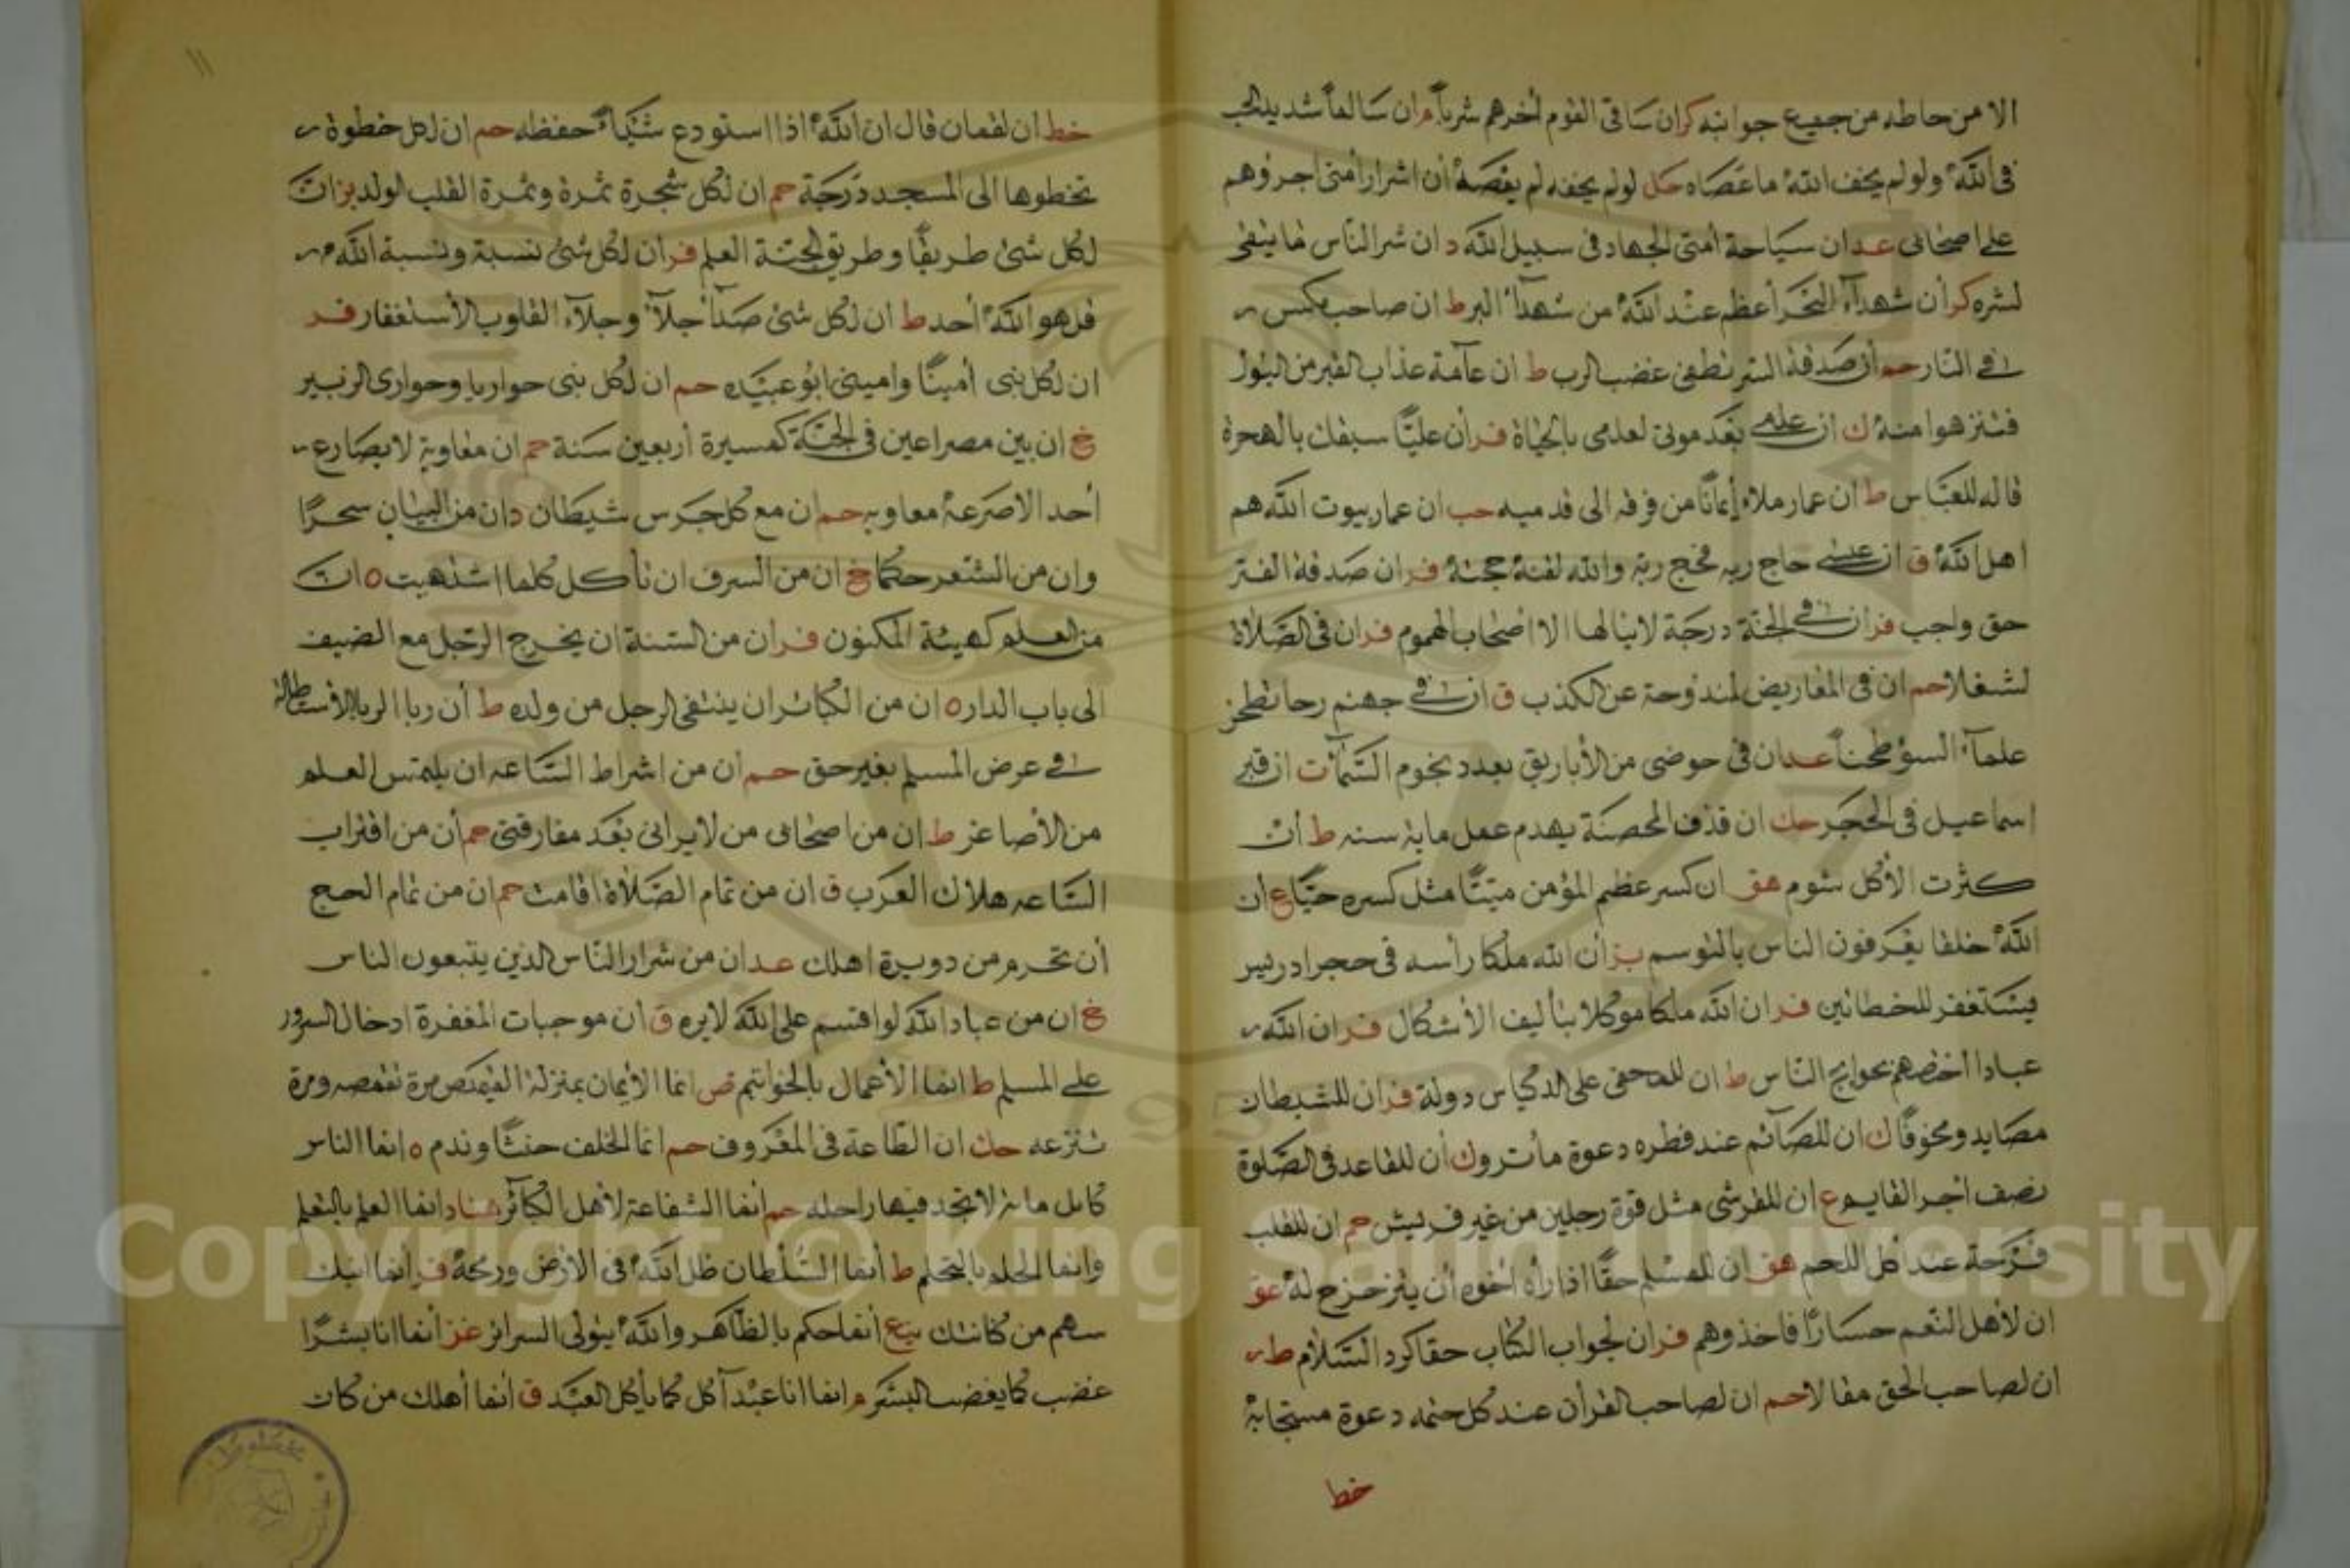 الا من حاطه من جميع جوانبه كر ان ساقى القوم أخرهم شرباً م ان سالماً شديد الحب
فى الله ولو لم يخف الله ما عصاه حل لو لم يخفه لم يعصه أن اشرار أمتى اجرؤهم
على اصحابى عد ان سياحة أمتى الجهاد فى سبيل الله د ان شر الناس ما يتقى
لشره كر أن شهدآء البحر أعظم عند الله من شهدآء البر ط ان صاحب مكس
فى النار حم أن صدقة السر تطفى غضب الرب ط ان عآمة عذاب القبر من البول
فتنزهوا منه ك ان علمى بعد موتى لعلمى بالحياة فر أن عليًّا سبقك بالهجرة
قاله للعباس ط ان عمار ملاء إيمانًا من فرقه الى قدميه حب ان عمار بيوت الله هم
اهل الله ق ان عيسى حاج ربه فحج ربه والله لقنه حجته فر ان صدقة الفتر
حق واجب فر ان فى الجنة درجة لا ينالها الا اصحاب الهموم فر ان فى الصلاة
لشغلا حم ان فى المعاريض لمندوحة عن الكذب ق ان فى جهنم رحا تطحن
علمآء السؤ طحناً عد ان فى حوضى من الأباريق بعدد نجوم السمآء ت ان قبر
اسماعيل فى الحجر حك ان قذف المحصنة يهدم عمل ماية سنه ط أن
كثرت الأكل شوم هق ان كسر عظم المؤمن ميتًا مثل كسره حيًّا ع ان
الله خلقا يعرفون الناس بالتوسم بز أن الله ملكا رأسه فى حجر ادريس
يستغفر للخطائين فر ان الله ملكا موكلا بتأليف الأشكال فر ان الله
عبادا اختصهم بحوايج الناس ط ان للحمقى على الاكياس دولة فر ان للشيطان
مصايد وفخوقًا ك ان للصآئم عند فطره دعوة ما ترد ك أن للقاعد فى الصلوة
نصف أجر القايم ع ان للقرشى مثل قوة رجلين من غير قريش حم ان للقلب
فرحة عند أكل اللحم هق ان للمسلم حقًا اذا رأه اخوه أن يتزحزح له عو
ان لأهل النعم حسادًا فاحذروهم فر ان لجواب الكتاب حقا كرد السلام ط
ان لصاحب الحق مقالا حم ان لصاحب القرأن عند كل ختمه دعوة مستجابة
خط
١١
خط ان لقمان قال ان الله اذا استودع شيئاً حفظه حم ان لكل خطوة
تخطوها الى المسجد درجة حم ان لكل شجرة ثمرة وثمرة القلب الولد بز ان
لكل شئ طريقًا وطريق الجنة العلم فر ان لكل شئ نسبة ونسبة الله
قل هو الله أحد ط ان لكل شئ صدأ جلآء وجلآء القلوب الأستغفار فر
ان لكل نبى أمينًا وامينى ابو عبيده حم ان لكل نبى حواريا وحوارى الزبير
غ ان بين مصراعين فى الجنة كمسيرة أربعين سنة حم ان معاوية لا يصارع
أحد الا صرعه معاويه حم ان مع كل جرس شيطان د ان من البيان سحرًا
وان من الشعر حكما غ ان من السرف ان تأكل كلما اشتهيت ٥ ان
من العلم كهيئة المكنون فر ان من السنة ان يخرج الرجل مع الضيف
الى باب الدار ٥ ان من الكبائر ان ينتفى الرجل من ولده ط أن ربا الربا الأستطالة
فى عرض المسلم بغير حق حم أن من اشراط الساعه ان يلتمس العلم
من الأصاغر ط ان من اصحابى من لا يرانى بعد مفارقتى حم أن من اقتراب
الساعه هلاك العرب ق ان من تمام الصلاة اقامت حم ان من تمام الحج
أن تحرم من دويرة اهلك عد ان من شرار الناس الذين يتبعون الناس
غ ان من عباد الله لو اقسم على الله لابره ق أن موجبات المغفرة ادخال السرور
على المسلم ط انما الأعمال بالخواتيم ص انما الأيمان بمنزلة القميص مرة تقمصه ومرة
تنزعه حك ان الطاعة فى المعروف حم انما الحلف حنثًا وندم ٥ انما الناس
كابل مائة لا تجد فيها راحله حم أنما الشفاعة لأهل الكبآئر هناد انما العلم بالتعلم
وانما الحلم بالتحلم ط أنما السلطان ظل الله فى الارض ورمحه فر انما ابنك
سهم من كنانتك يع أنما احكم بالظاهر والله يتولى السرائر غز أنما انا بشرًا
غضب كما يغضب البشر م انما انا عبد آكل كما يأكل العبد ق أنما أهلك من كان
Copyright © King Saud University